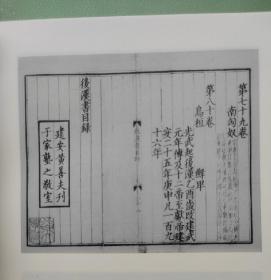 第七十九卷
南匈奴
第八十卷
烏桓
鮮卑
光武起後漢乙酉歲改建武
元年傳及十二帝至獻帝建
安二十五年庚申凡一百九
十六年
後漢書目錄
建安黃善夫刊
于家塾之敬室